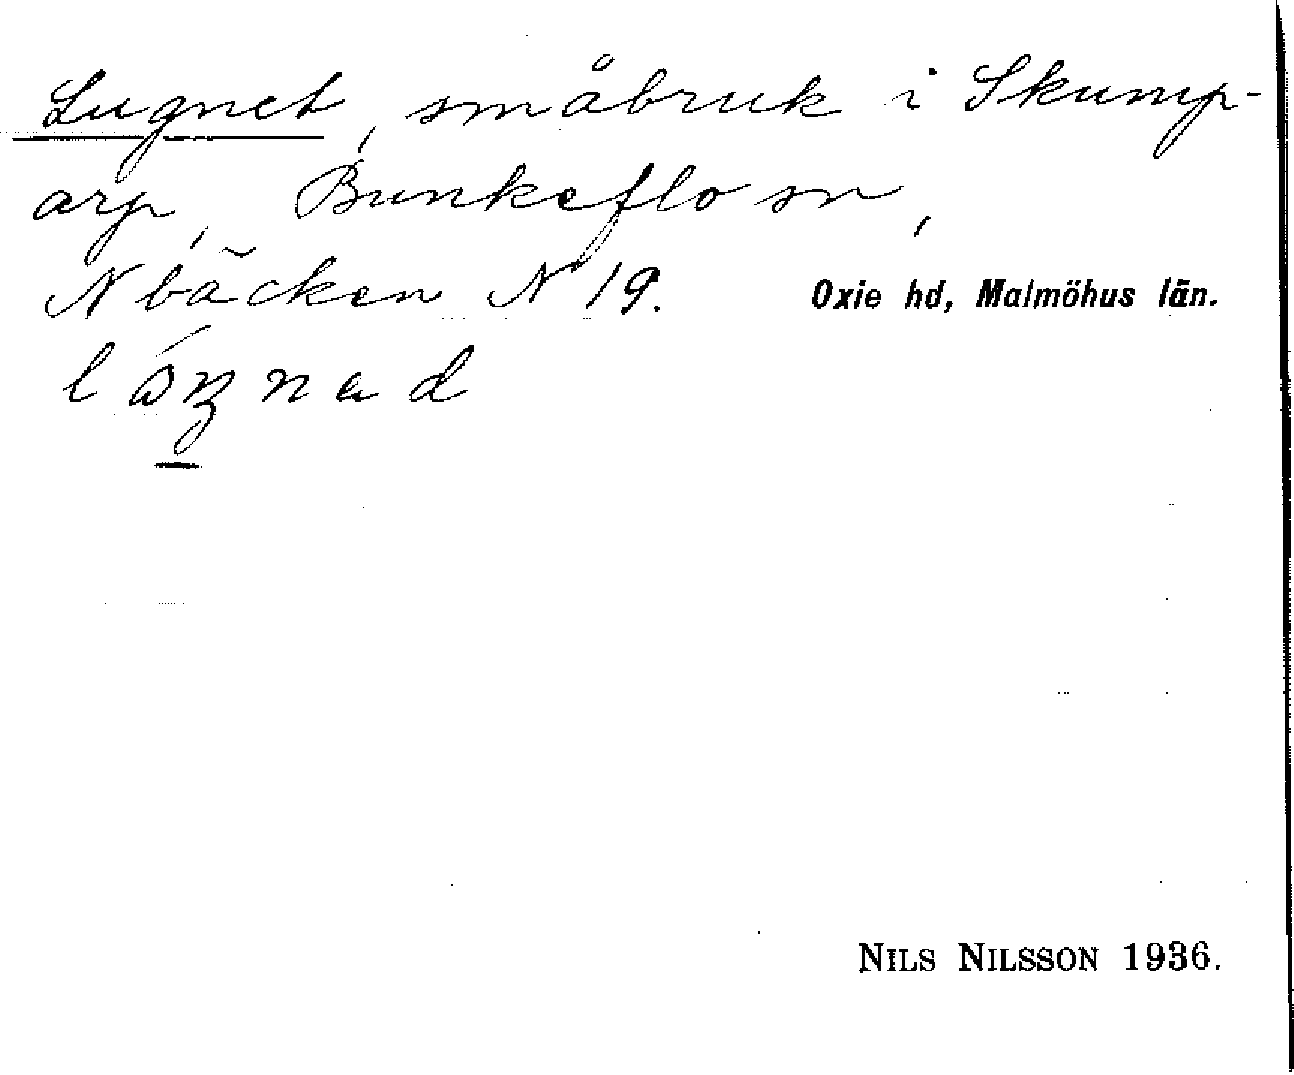 Lugnet, småbruk i Skump-
arp, Bunkeflo sn,
N bäcken N 19. Oxie hd, Malmöhus län.
NILS NILSSON 1936.